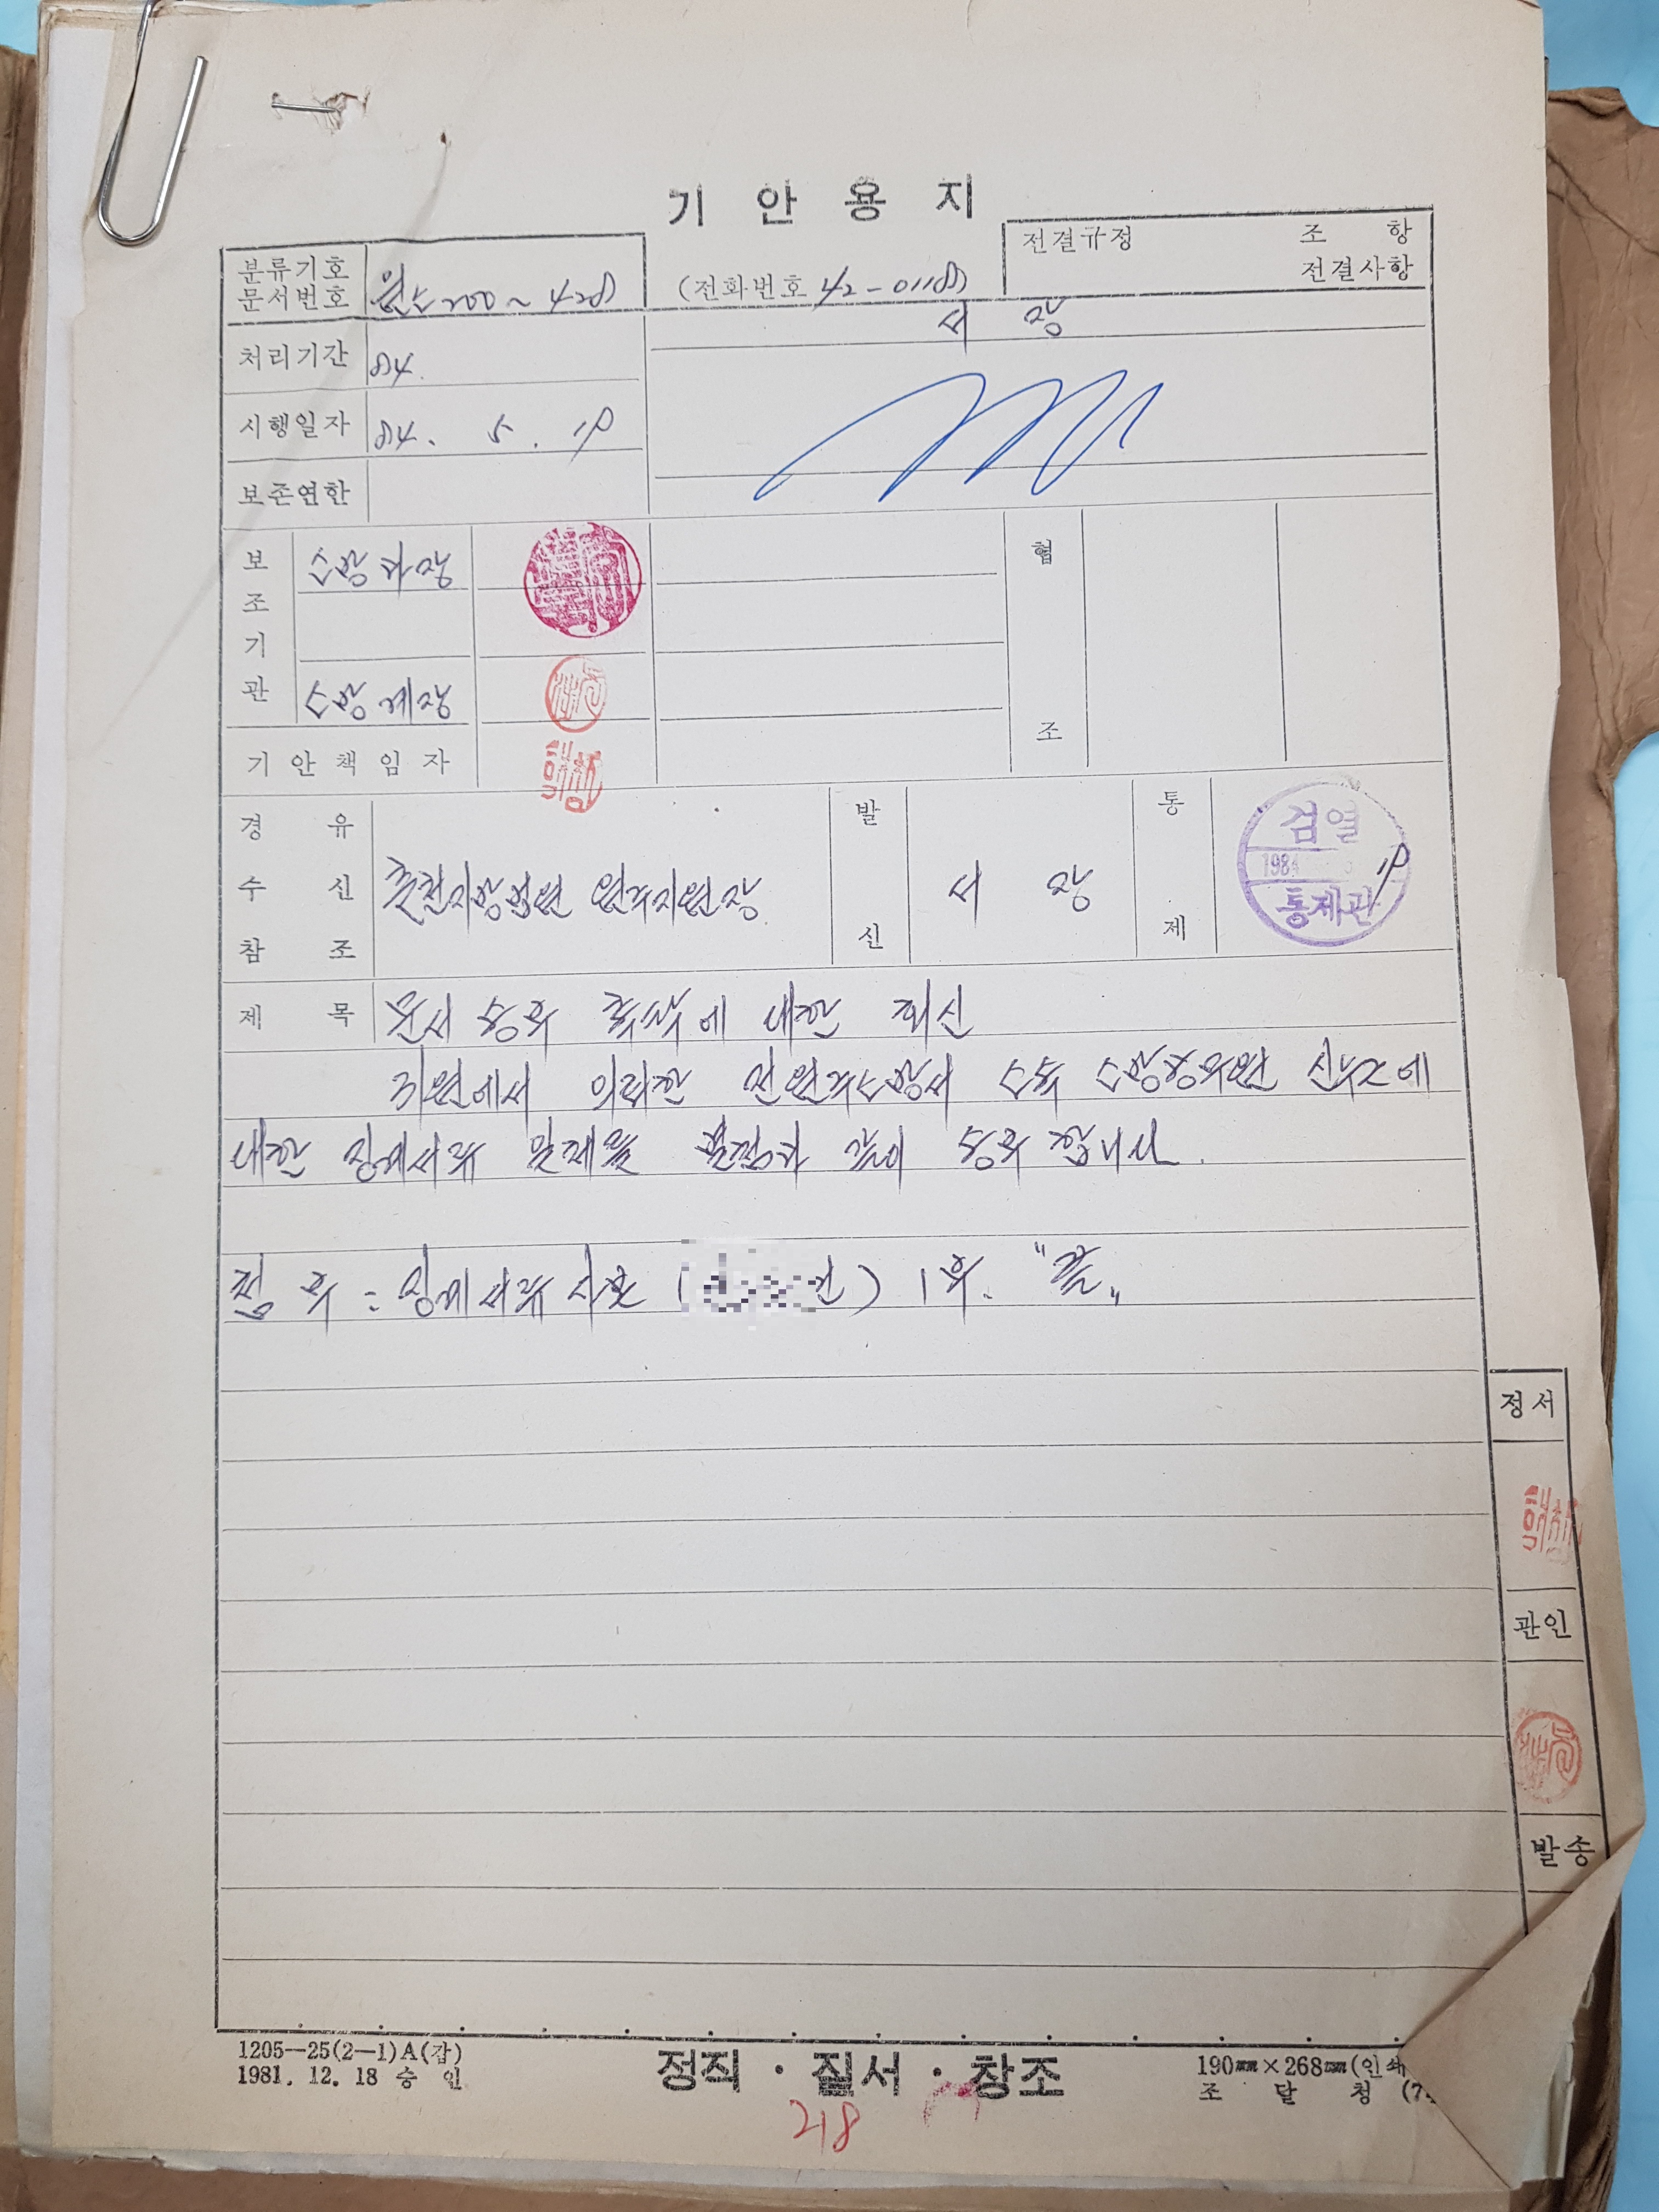 기 안 용 지
전결규정 조 항
전결사항
분류기호
문서번호 원소 200~428
(전화번호 42-0118)
서 장
처리기간 84.
시행일자 84. 5. 18
보존연한
보조기관
소방과장
소방계장
협조
기 안 책 임 자
경 유
수 신 춘천지방법원 원주지원장
참 조
발신 서 장
통제
검열
1984 5 18
통제관
제 목 문서 송부 촉탁에 대한 회신
귀원에서 의뢰한 전원주소방서 소속 소방공무원 신규조에
대한 징계서류 일체를 별첨과 같이 송부 합니다.
첨 부 : 징계서류 사본 ( ) 1부. "끝"
정서
관인
발송
1205-25(2-1)A(갑)
1981. 12. 18 승 인
정직 · 질서 · 창조
190㎜×268㎜(인쇄
조 달 청 (7
218